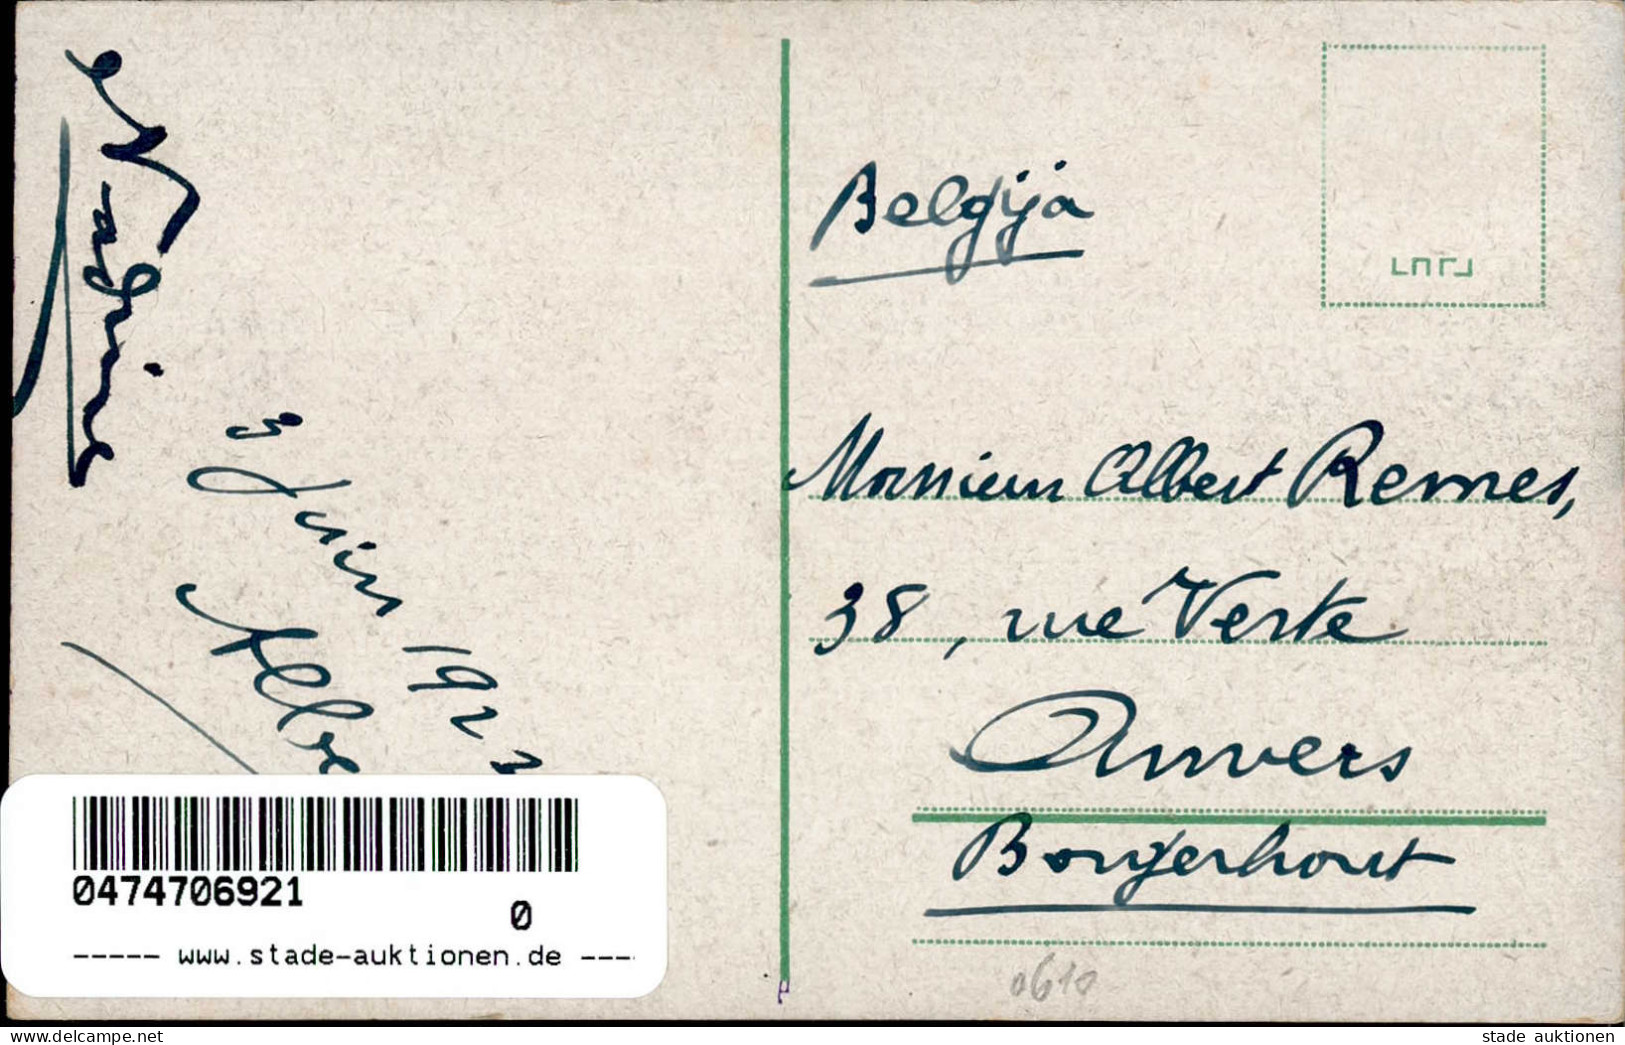 Nadine
3 Juin 192
Belgija
Monsieur Albert Remes,
38, rue Verte
Anvers
Borgerhout
0610
0474706921
0
----- www.stade-auktionen.de ---
stade auktionen
delcampe.net